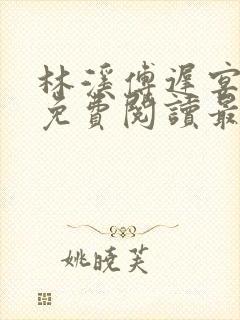 林溪傅遲宴
免費閱讀最
姚曉芙